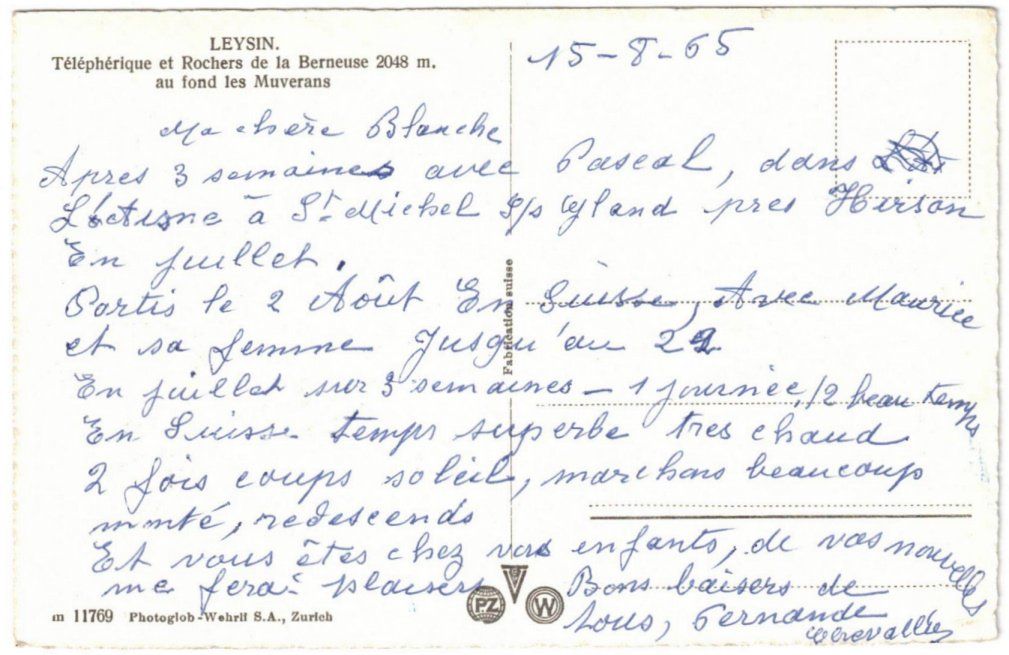 LEYSIN.
Téléphérique et Rochers de la Berneuse 2048 m.
au fond les Muverans
15-8-65
Ma chère Blanche
Apres 3 semaines avec Pascal, dans
L'Aisne à St Michel S/s Gland pres Hirson
En juillet.
Partis le 2 Août En Suisse, Avec Maurice
et sa femme Jusqu'au 22
En juillet sur 3 semaines - 1 journée 1/2 beau temps
En Suisse temps superbe tres chaud
2 fois coups soleil, marchons beaucoup
monté, redescends
Et vous êtes chez vos enfants, de vos nouvelles
me ferai plaisers Bons baisers de
tous, Fernande
Fabrication suisse
PZ W
m 11769 Photoglob-Wehrli S.A., Zurich